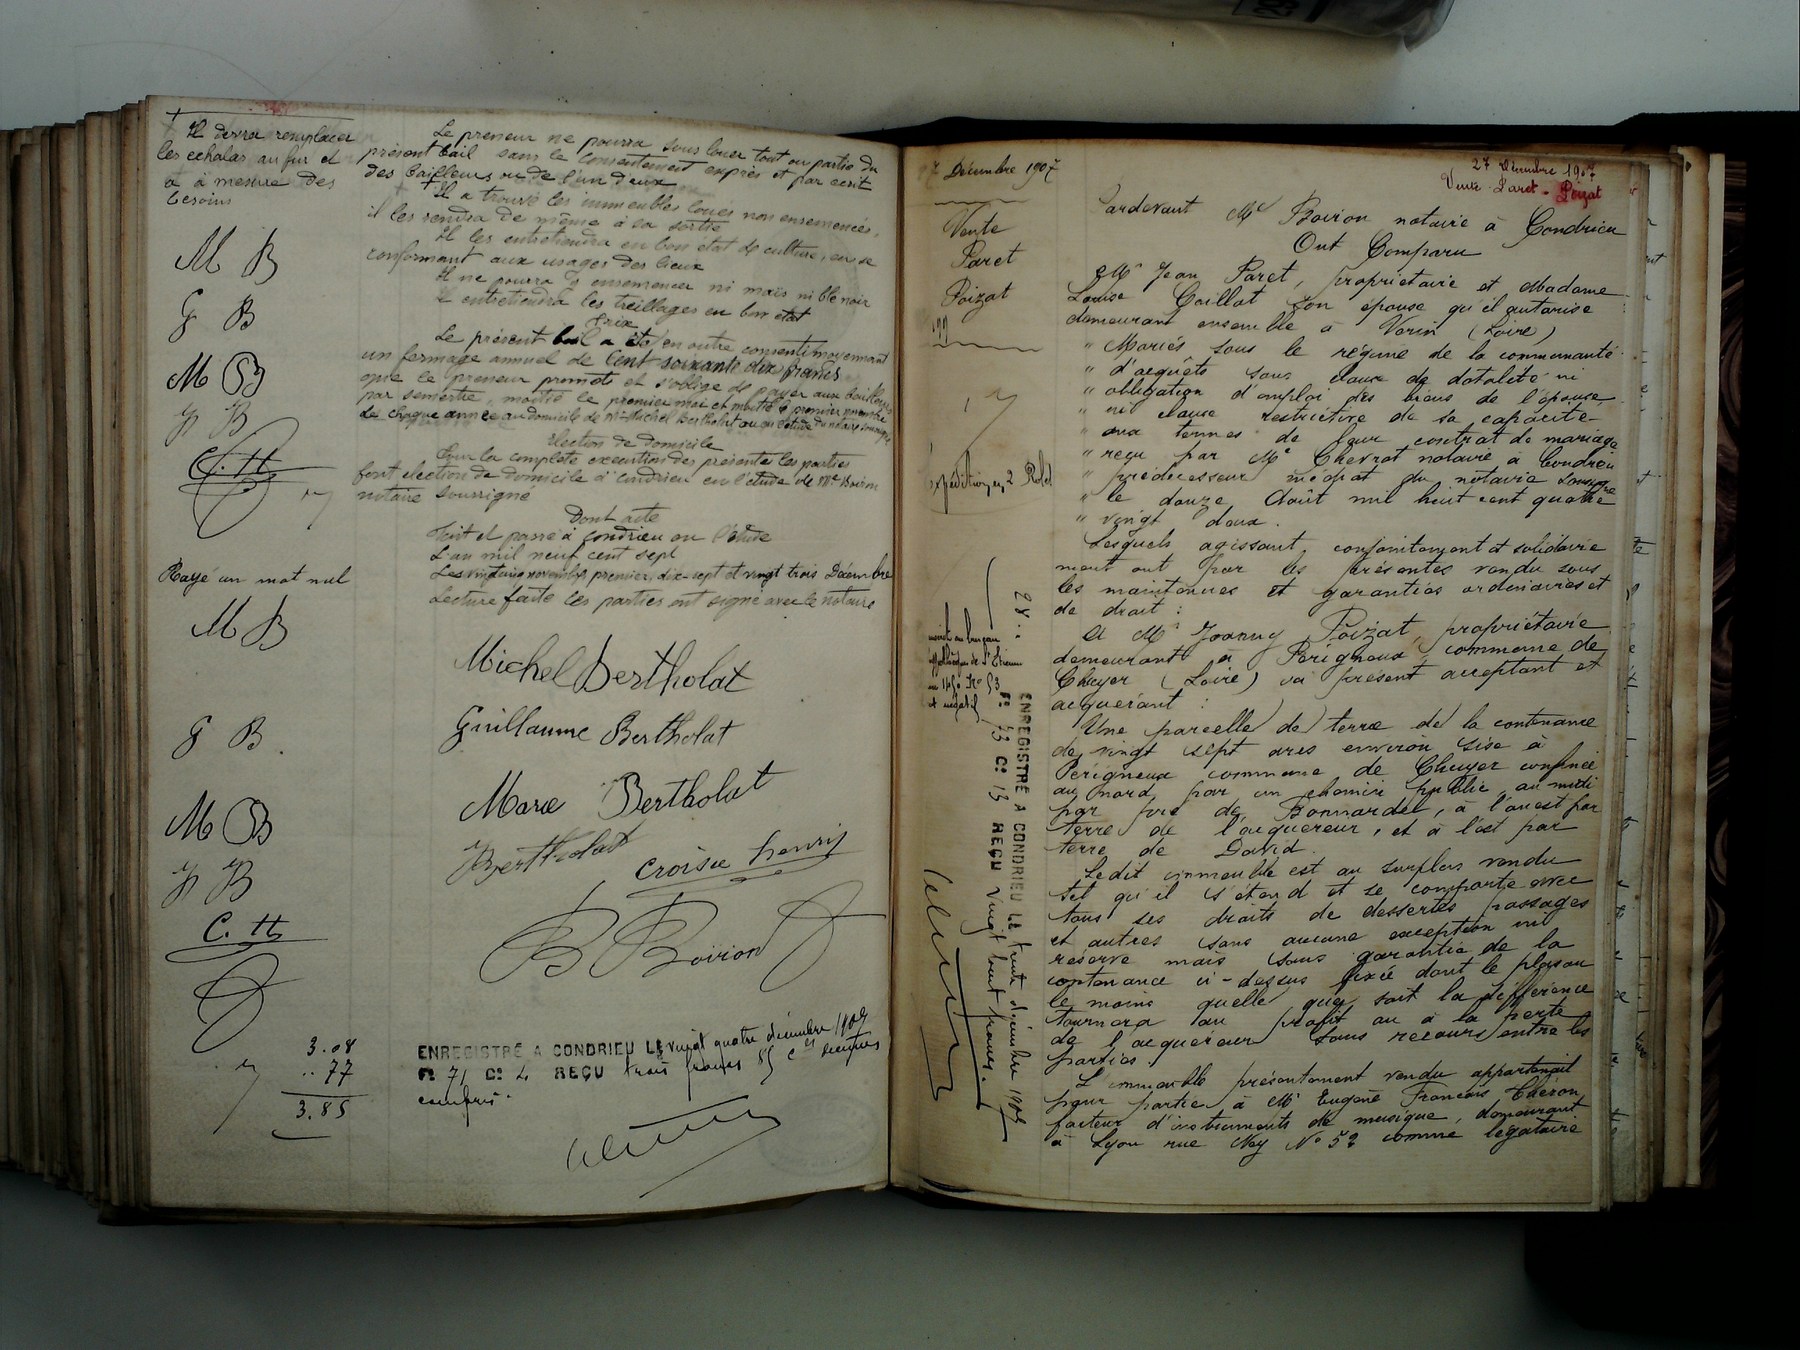 Il devra remplacer
les echalas au fur et
a à mesure des
besoins
M B
G B
M B
J B
C. H
Rayé un mot nul
M B
G B.
M B
J B
C. H
3.08
.. 77
3.85
Le preneur ne pourra sous louer tout ou partie du
présent bail sans le consentement exprès et par écrit
des bailleurs ou de l'un d'eux
Il a trouvé les immeubles loués non ensemencés,
il les rendra de même à sa sortie
Il les entretiendra en bon état de culture, en se
conformant aux usages des lieux
Il ne pourra y ensemencer ni maïs ni blé noir
Il entretiendra les treillages en bon état
Prix
Le présent bail a été en outre consenti moyennant
un fermage annuel de Cent soixante dix francs
que le preneur promet et s'oblige de payer aux bailleurs
par semestre, moitié le premier mai et moitié le premier novembre
de chaque année au domicile de Mr Michel Bertholat ou en l'étude du notaire soussigné
Election de domicile
Pour la complète exécution des présentes les parties
font élection de domicile à Condrieu en l'étude de Me Boiron
notaire soussigné
Dont acte
Fait et passé à Condrieu en l'étude
L'an mil neuf cent sept
Les vingt cinq novembre premier, dix-sept et vingt trois Décembre
Lecture faite les parties ont signé avec le notaire
Michel Bertholat
Guillaume Bertholat
Marie Bertholat
J Bertholat
Croisie henris
B Boiron
ENREGISTRÉ A CONDRIEU LE vingt quatre décembre 1907
Fo 71 Co 4 REÇU trois francs 85 ces décimes
compris.
27 Décembre 1907
Vente
Paret
Poizat
Expédition en 2 Roles
ENREGISTRÉ A CONDRIEU LE trente décembre 1907
Fo 73 Co 13 REÇU vingt huit francs.
27 Décembre 1907
Vente Paret - Poizat
Pardevant Me Boiron notaire à Condrieu
Ont Comparu
Mr Jean Paret, propriétaire et Madame
Louise Gaillat son épouse qu'il autorise
demeurant ensemble à Vérin (Loire)
" Mariés sous le régime de la communauté
" d'acquêts sans clause de dotalité ni
" obligation d'emploi des biens de l'épouse
" ni clause restrictive de sa capacité
" aux termes de leur contrat de mariage
" reçu par Me Chevrot notaire à Condrieu
" prédécesseur médiat du notaire soussigné
" le douze Août mil huit cent quatre
" vingt deux.
Lesquels agissant conjointement et solidaire
ment ont par les présentes vendu sous
les maintenues et garanties ordinaires et
de droit :
A Mr Joanny Poizat, propriétaire
demeurant à Périgneux commune de
Chuyer (Loire) ici présent acceptant et
acquérant :
Une parcelle de terre de la contenance
de vingt sept ares environ sise à
Périgneux commune de Chuyer confinée
au nord par un chemin public, au midi
par pré de Bonnardel, à l'ouest par
terre de l'acquéreur, et à l'est par
terre de David.
Ledit immeuble est au surplus vendu
tel qu'il s'étend et se comporte avec
tous ses droits de dessertes passages
et autres sans aucune exception ni
réserve mais sans garantie de la
contenance ci-dessus fixée dont le plus ou
le moins quelle que soit la différence
tournera au profit ou à la perte
de l'acquéreur sans recours entre les
parties.
L'immeuble présentement vendu appartenait
pour partie à Mr Eugène François Chéron
facteur d'instruments de musique, demeurant
à Lyon rue Ney No 52 comme légataire